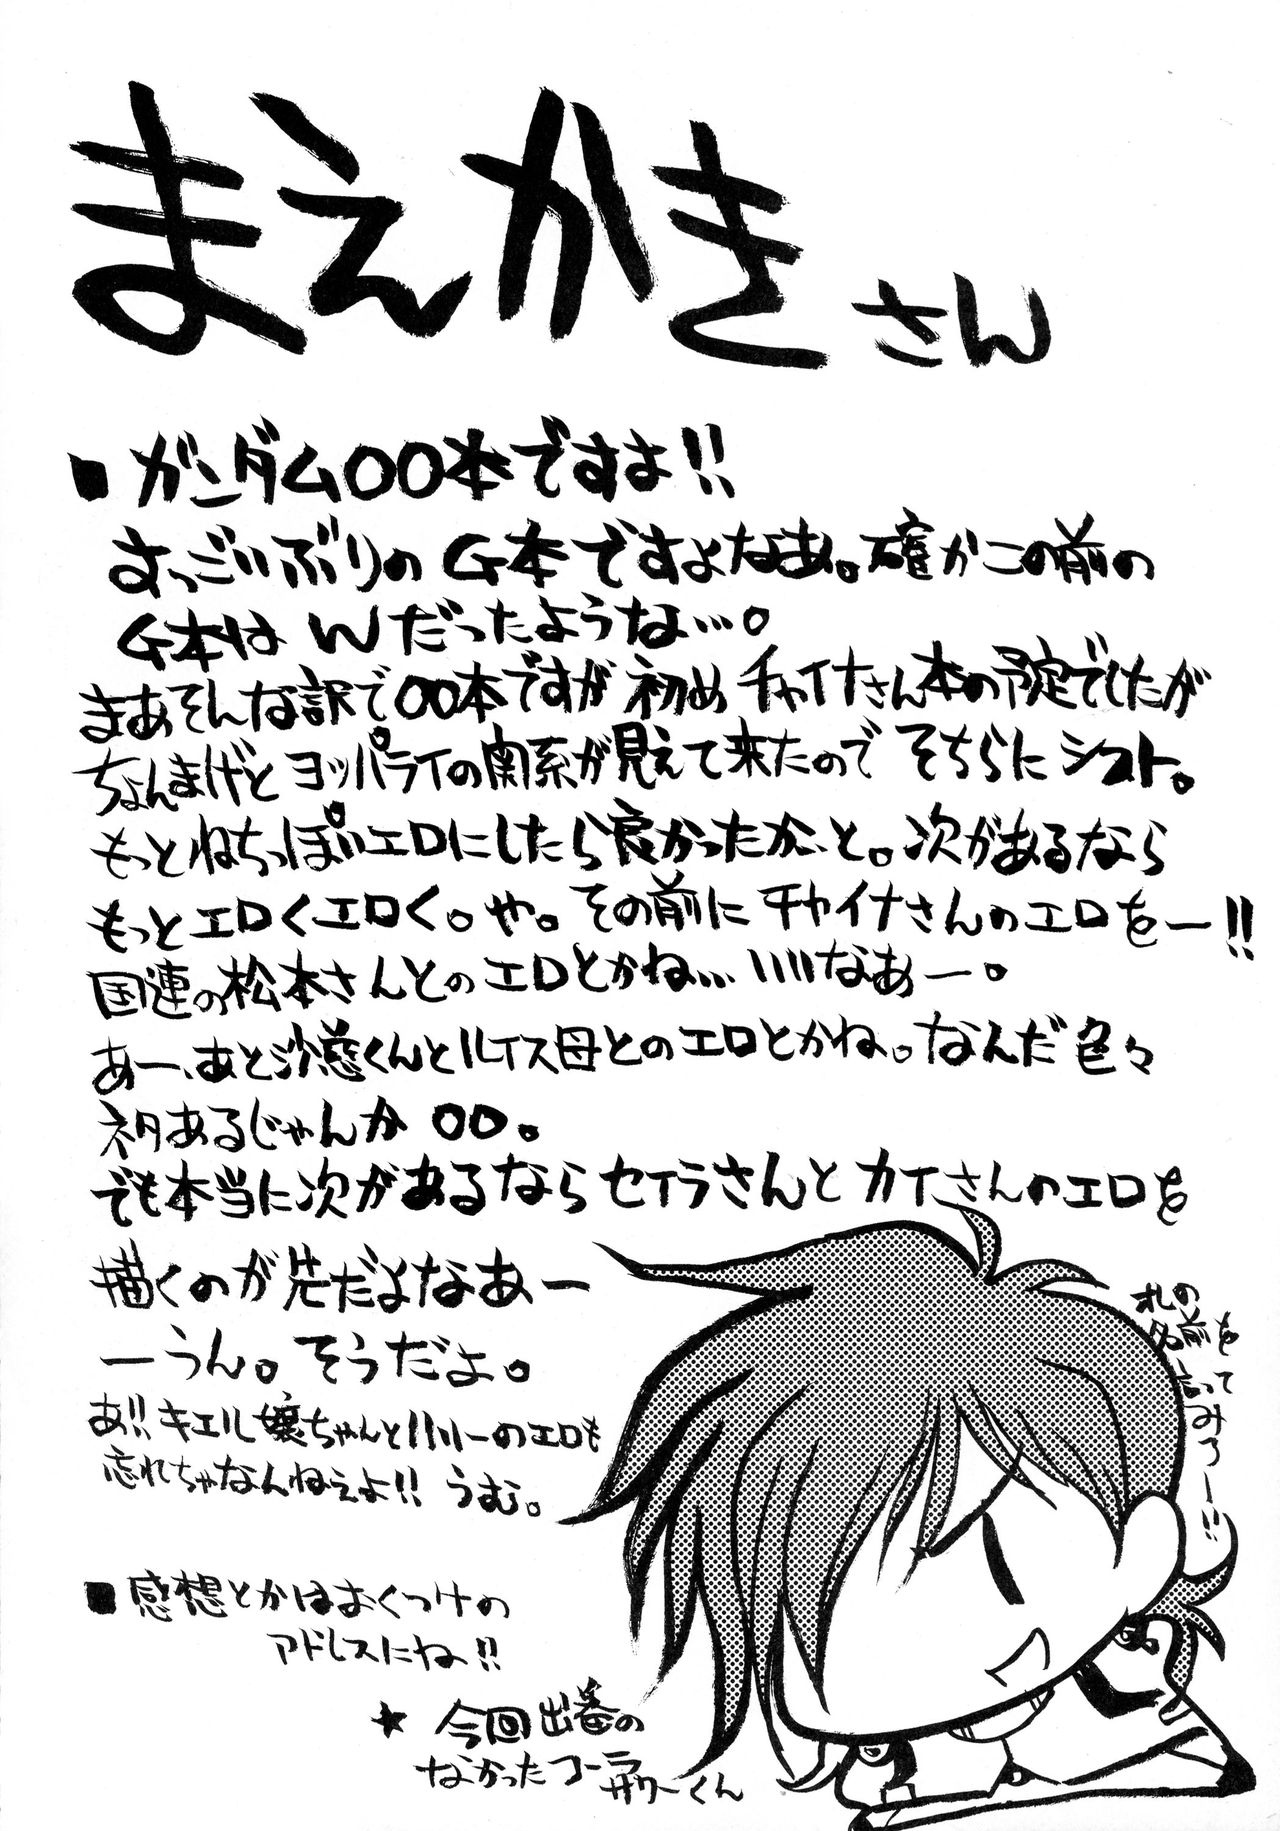 まえかきさん
■ ガンダム00本ですよ!!
すっごいぶりのG本ですよなあ。確かこの前の
G本はWだったような…。
まあそんな訳で00本ですが初めチャイナさん本の予定でしたが
ちょんまげとヨッパライの関係が見えて来たのでそちらにシフト。
もっとねちっぽいエロにしたら良かったか、と。次があるなら
もっとエロくエロく。や。その前にチャイナさんのエロをー!!
国連の松本さんとのエロとかね…いいなあー。
あー、あと沙慈くんとルイス母とのエロとかね。なんだ色々
ネタあるじゃんか00。
でも本当に次があるならセイラさんとカイさんのエロを
描くのが先だよなあー
ーうん。そうだよ。
あ!!キエル嬢ちゃんとハリーのエロも
忘れちゃなんねぇよ!!うむ。
■ 感想とかはおくつけの
アドレスにね!!
★ 今回出番の
なかったコーラサワーくん
オレの
名前を
言って
みろー!!